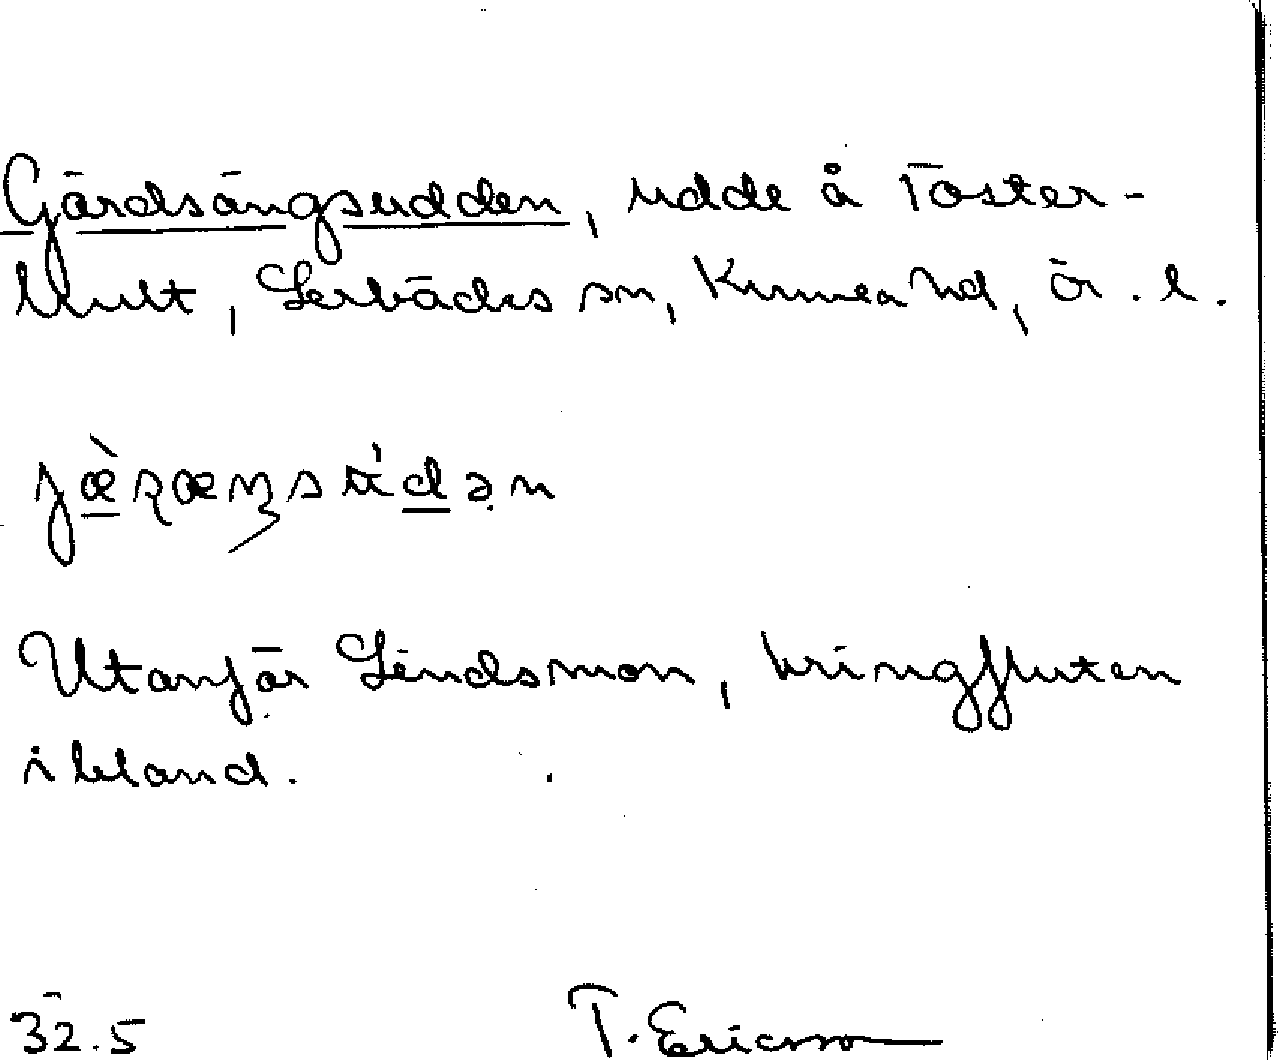 Gärdsängsudden, udde å Toster-
hult, Lerbäcks sn, Kumla hd, Ör. l.
Utanför Lindsmon, kringfluten
ibland.
32.5 T. Ericsson